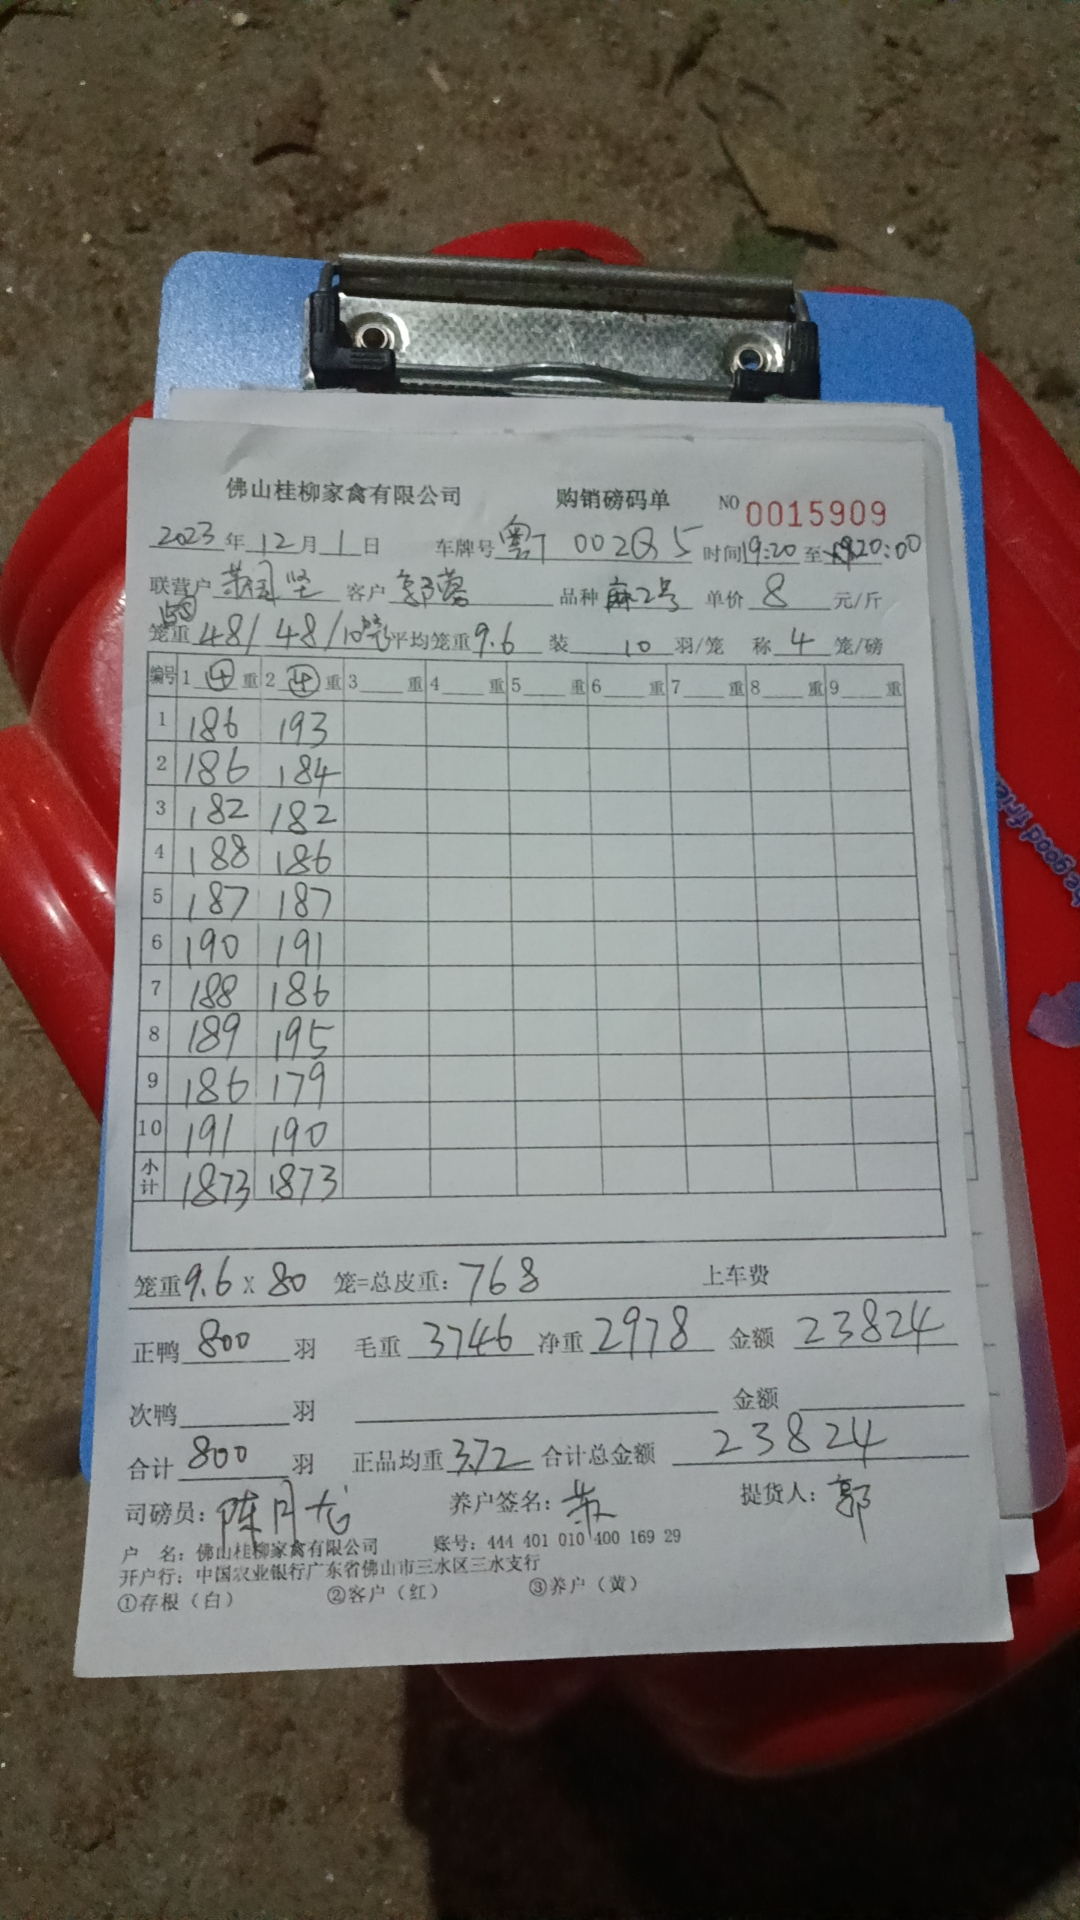 佛山桂柳家禽有限公司 购销磅码单 NO 0015909
2023年12月1日 车牌号 粤T 002Q5 时间19:20至20:00
联营户 坚 客户 郭 品种 麻2号 单价 8 元/斤
笼重 48/ 48/10 平均笼重9.6 装 10 羽/笼 称 4 笼/磅
编号 1 ④ 重 2 ④ 重 3 重 4 重 5 重 6 重 7 重 8 重 9 重
1 186 193
2 186 184
3 182 182
4 188 186
5 187 187
6 190 191
7 188 186
8 189 195
9 186 179
10 191 190
小计 1873 1873
笼重9.6 X 80 笼=总皮重: 768 上车费
正鸭 800 羽 毛重 3746 净重 2978 金额 23824
次鸭 羽 金额
合计 800 羽 正品均重 3.72 合计总金额 23824
司磅员: 陈月龙 养户签名: 提货人: 郭
户 名: 佛山桂柳家禽有限公司 账号: 444 401 010 400 169 29
开户行: 中国农业银行广东省佛山市三水区三水支行
①存根（白） ②客户（红） ③养户（黄）
be good frie